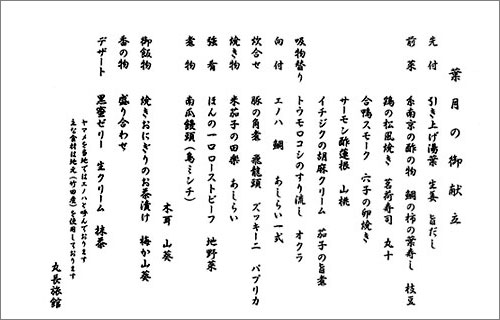 葉月の御献立
先付 引き上げ湯葉 生姜 旨だし
前菜 糸南京の酢の物 鯛の柿の葉寿し 枝豆
鶏の松風焼き 茗荷寿司 丸十
合鴨スモーク 六子の卵焼き
サーモン酢蓮根 山桃
イチジクの胡麻クリーム 茄子の旨煮
吸物替り トウモロコシのすり流し オクラ
向付 エノハ 鯛 あしらい一式
炊合せ 豚の角煮 飛龍頭 ズッキーニ パプリカ
焼き物 米茄子の田楽 あしらい
強肴 ほんの一口ローストビーフ 地野菜
煮物 南瓜饅頭（鳥ミンチ）
木耳 山葵
御飯物 焼きおにぎりのお茶漬け 梅か山葵
香の物 盛り合わせ
デザート 黒蜜ゼリー 生クリーム 抹茶
ヤマメを当地ではエノハと呼んでおります
主な食材は地元（竹田産）を使用しております
丸長旅館